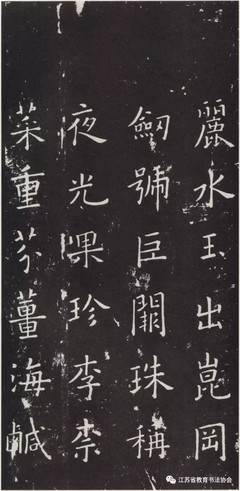 麗水玉出崑岡
劔號巨闕珠稱
夜光果珍李柰
菜重芥薑海鹹
江苏省教育书法协会